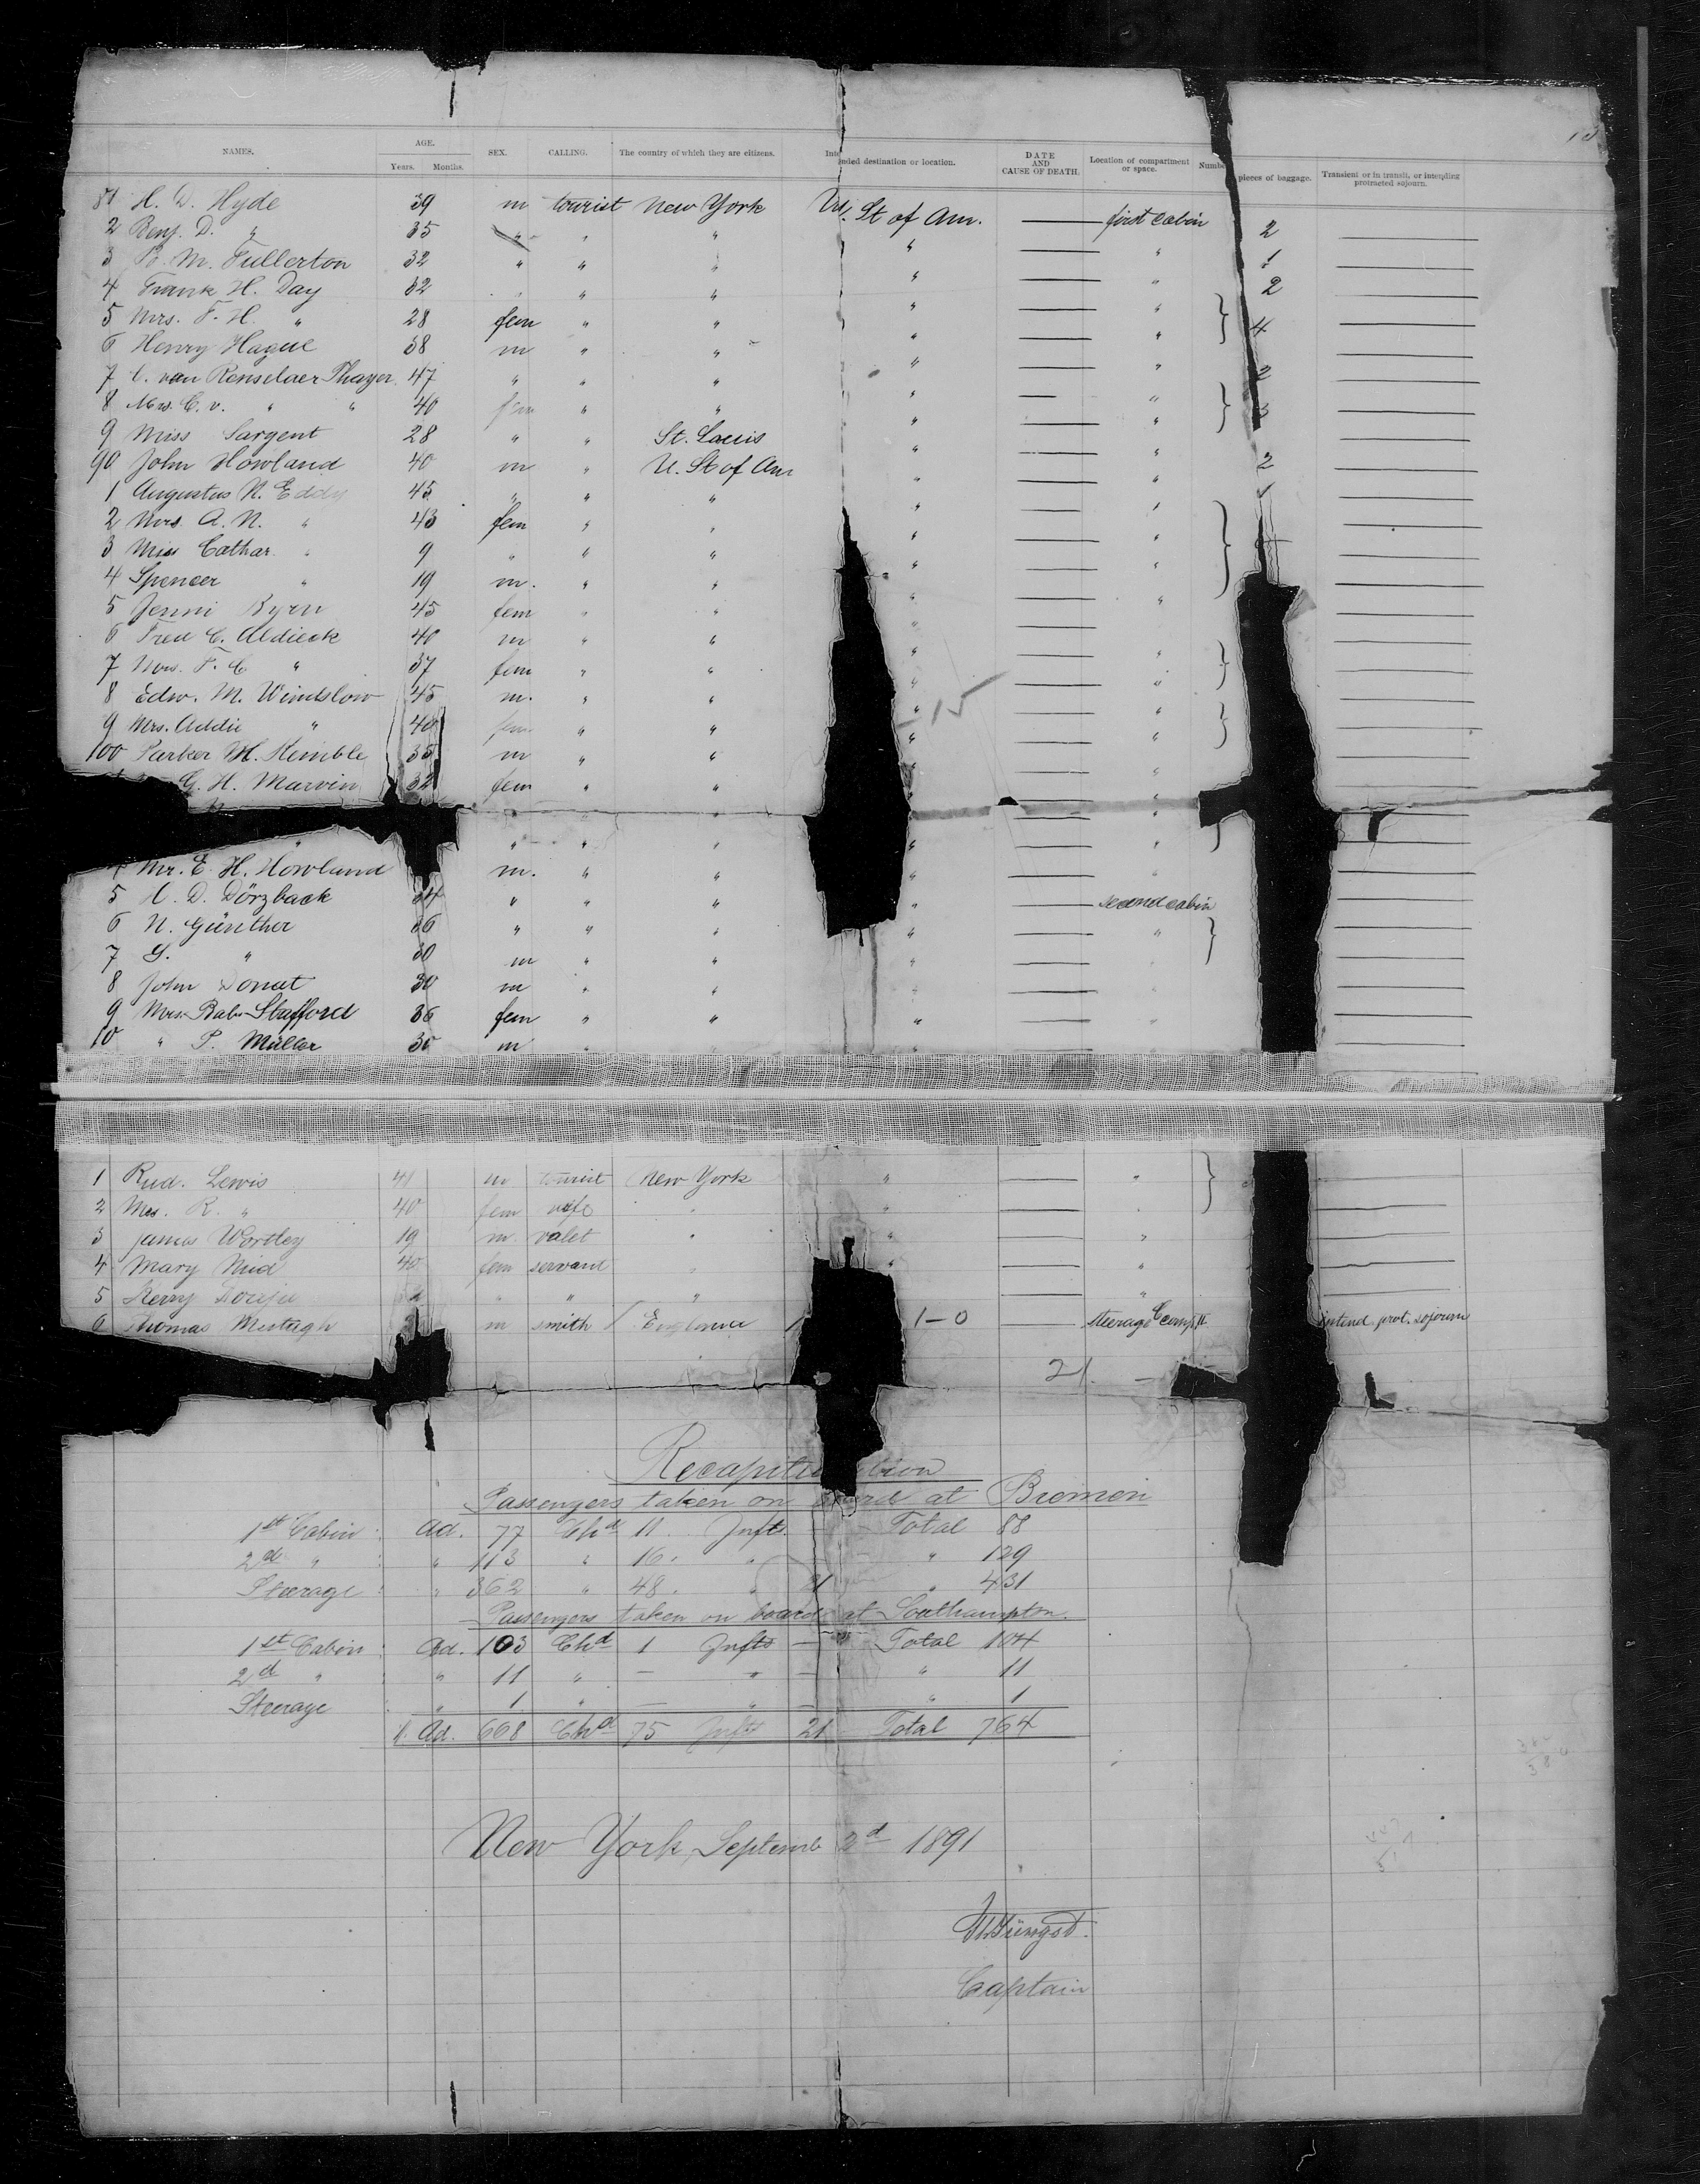 NAMES. AGE. Years. Months. SEX. CALLING. The country of which they are citizens. Intended destination or location. DATE AND CAUSE OF DEATH. Location of compartment or space. Number pieces of baggage. Transient or in transit, or intending protracted sojourn.
81 H. D. Hyde 39 m tourist New York Un. St of Am. — first cabin 2 —
2 Benj. D. " 35 " " " " — " 1 —
3 B. M. Fullerton 32 " " " " — " 2 —
4 Frank H. Day 32 " " " " — " } 4 —
5 Mrs. F. H. " 28 fem " " " — " —
6 Henry Hague 38 m " " " — " 2 —
7 C. van Renselaer Thayer 47 " " " " — " } 3 —
8 Mrs. C. v. " " 40 fem " " " — " —
9 Miss Sargent 28 " " St. Louis " — " 2 —
90 John Howland 40 m " U. St of Am " — " 1 —
1 Augustus N. Eddy 45 " " " " — " } 4 —
2 Mrs. A. N. " 43 fem " " " — " —
3 Miss Cathar. " 9 " " " " — " —
4 Spencer " 19 m. " " " — " —
5 Jenni Byrn 45 fem " " " — —
6 Fred C. Aldieck 40 m " " " — " } —
7 Mrs. F. C " 37 fem " " " — " —
8 Edw. M. Windslow 45 m. " " " — " } —
9 Mrs. Addie " 40 fem " " " — " —
100 Parker M. Kemble 35 m " " " — " —
G. H. Marvin 32 fem " " " — " —
" " " " — " —
" " " " " — " } —
4 Mr. E. H. Howland m. " " " — " —
5 A. D. Dörzback 34 " " " " — second cabin —
6 N. Günther 36 " " " " — " } —
7 G. " 30 m " " " — " —
8 John Donat 30 m " " " — " —
9 Mrs. Bab. Stafford 36 fem " " " — " —
10 " P. Müller 30 m " " — —
1 Rud. Lewis 41 m tourist New York " — " }
2 Mrs. R. " 40 fem wife " " — " —
3 James Wortley 19 m. valet " " — " —
4 Mary Mud 40 fem servant " " — " —
5 Kerry " " " — " —
6 Thomas Murtagh m smith England 1-0 — steerage Comp. II intend. prot. sojourn
21.
Recapitulation
Passengers taken on board at Bremen
1st Cabin : Ad. 77 Chd 11. Infts. — Total 88
2d " : " 113 " 16. " " 129
Steerage : " 362 " 48. " 21 " 431
Passengers taken on board at Southampton.
1st Cabin : Ad. 103 Chd 1 Infts — Total 104
2d " : " 11 " — " — " 11
Steerage " 1 " — " — " 1
Ad. 668 Chd 75 Infts 21 Total 764
New York, Septemb 2d 1891
Jüngst.
Captain